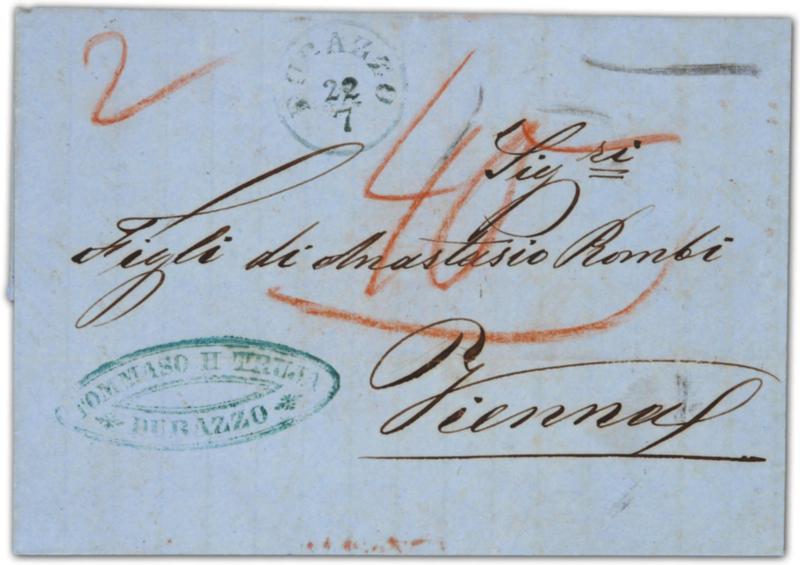 2
DURAZZO
22
7
40
Sigri
Figli di Anastasio Rombi
Vienna
TOMMASO H
DURAZZO